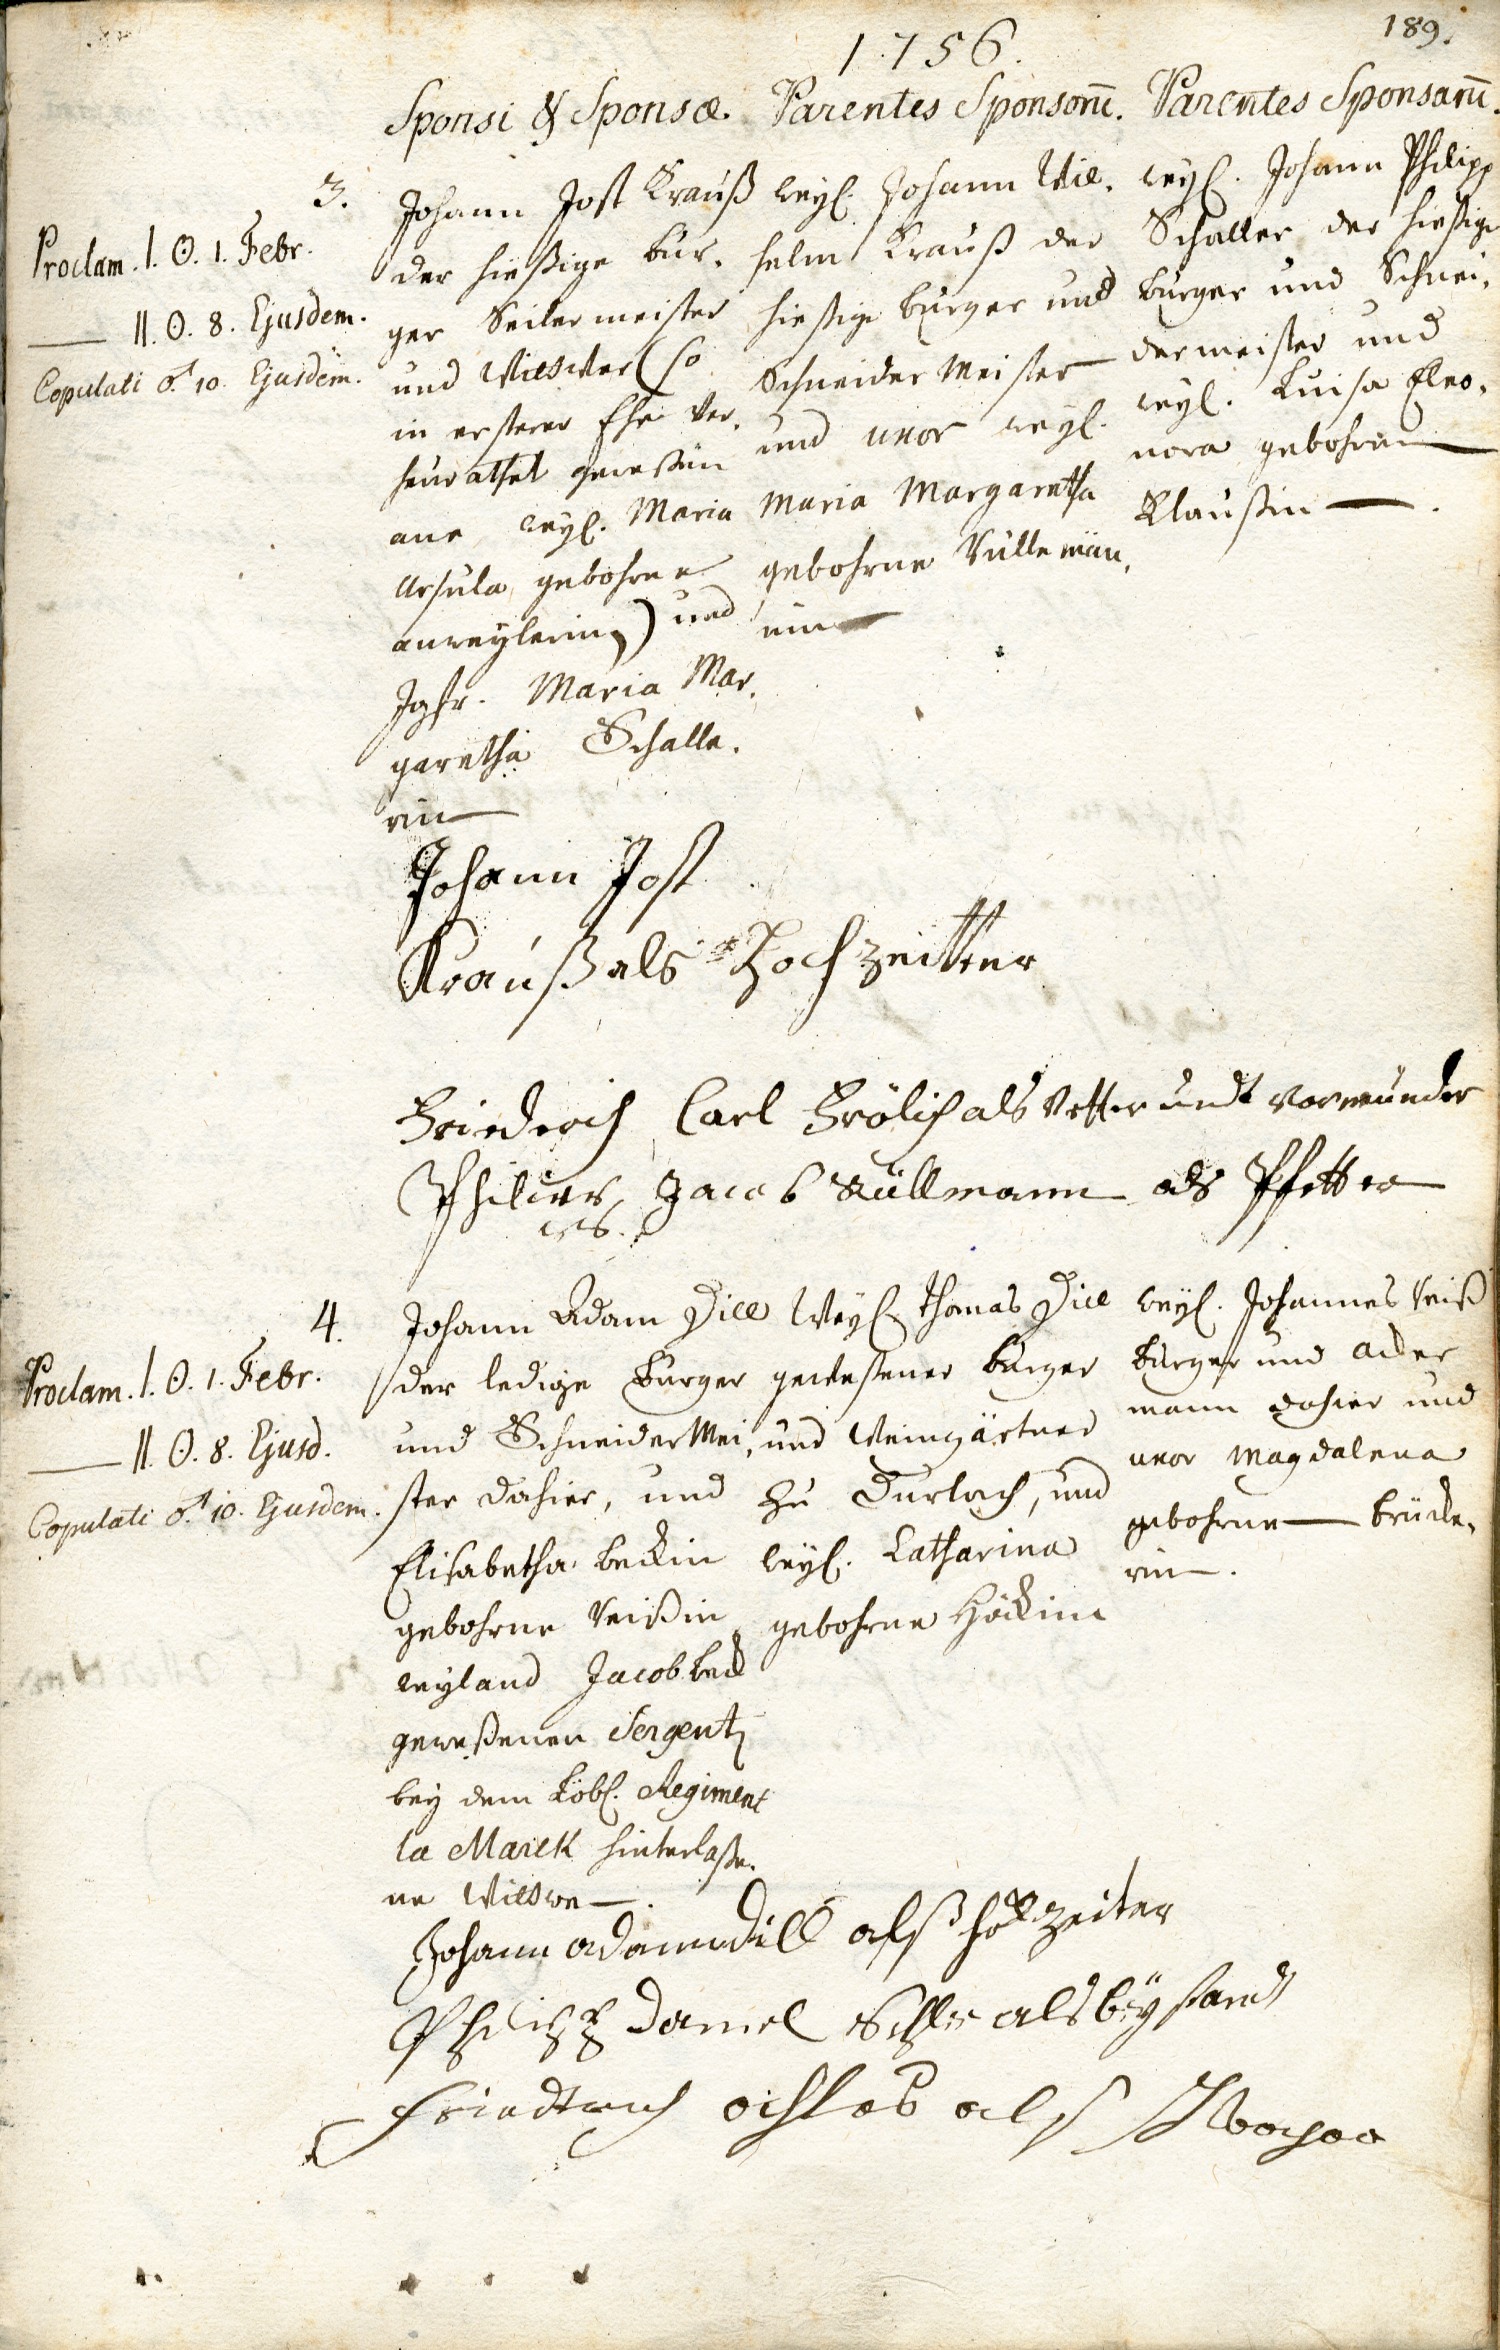 189.
1756.
Sponsi & Sponsæ. Parentes Sponsorū. Parentes Sponsarū.
3.
Proclam. I. ʘ. 1. Febr.
— II. ʘ. 8. Ejusdem.
Copulati ♂ 10. Ejusdem.
Johann Jost Krauß
der hießige bur-
ger Seilermeister
und Wittwer (so
in ersterer Ehe ver-
heurathet geweßen
ane weyl. Maria
Ursula gebohrne
anweylerin,) und
Jgfr. Maria Mar-
garetha Schalle-
rin
weyl. Johann Wil-
helm Krauß der
hießige burger und
Schneider Meister
und uxor weyl.
Maria Margaretha
gebohrne Kullemän-
nin
weyl. Johann Philipp
Schaller der hießige
burger und Schnei-
dermeister und
weyl. Luisa Eleo-
nora gebohrne
Klaußin.
Johann Jost
Kraüß als Hochzeitter
Friederich Carl Frölich als Vetter undt Vormunder
Philipps Jacob Küllmann als Pfetter
4.
Proclam. I. ʘ. 1. Febr.
— II. ʘ. 8. Ejusd.
Copulati ♂ 10. Ejusdem.
Johann Adam Dill
der ledige burger
und Schneider Mei-
ster dahier, und
Elisabetha beckin
gebohrne Veißin
weyland Jacob beck
geweßenen Sergent
bey dem Löbl. Regiment
la Marck hinterlaße-
ne Wittwe.
Weyl. Thomas Dill
geweßener burger
und Weingärtner
zu Durlach, und
weyl. Catharina
gebohrne Höckin
weyl. Johannes Veiß
burger und acker
mann dahier und
uxor Magdalena
gebohrne brücke-
rin.
Johann adam dill alß hochzeiter
Philipp Daniel als beystandt
Friedrich als